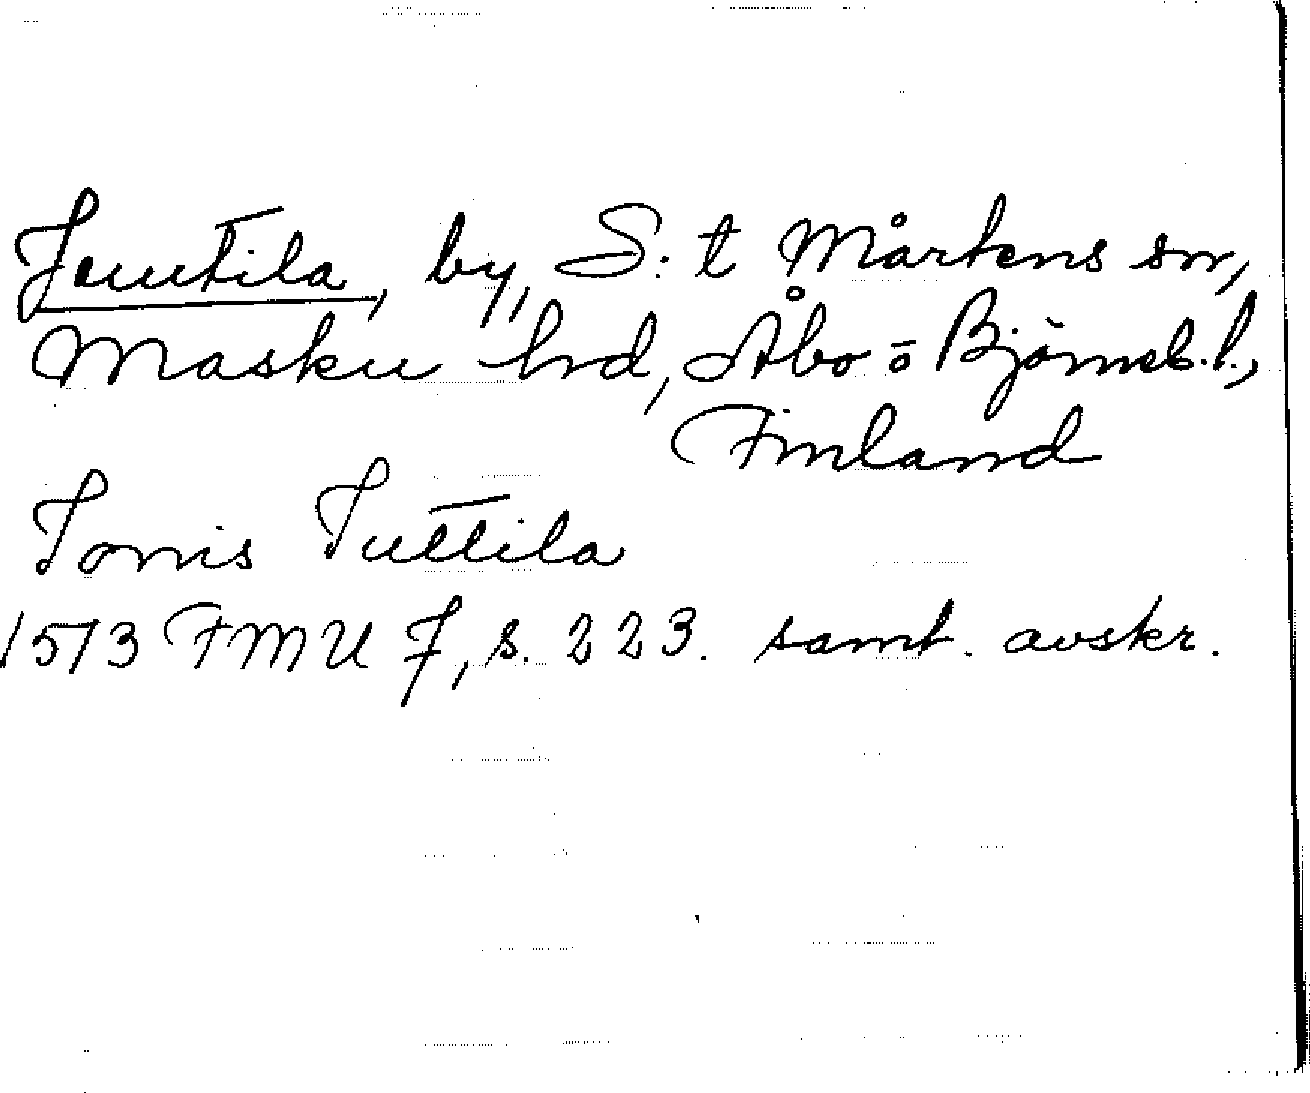 Joutila, by, S:t Mårtens sn,
Masku hrd, Åbo o Björneb. l.,
Finland
Jonis Juttila
1513 FMU 7, s. 223. samt. avskr.